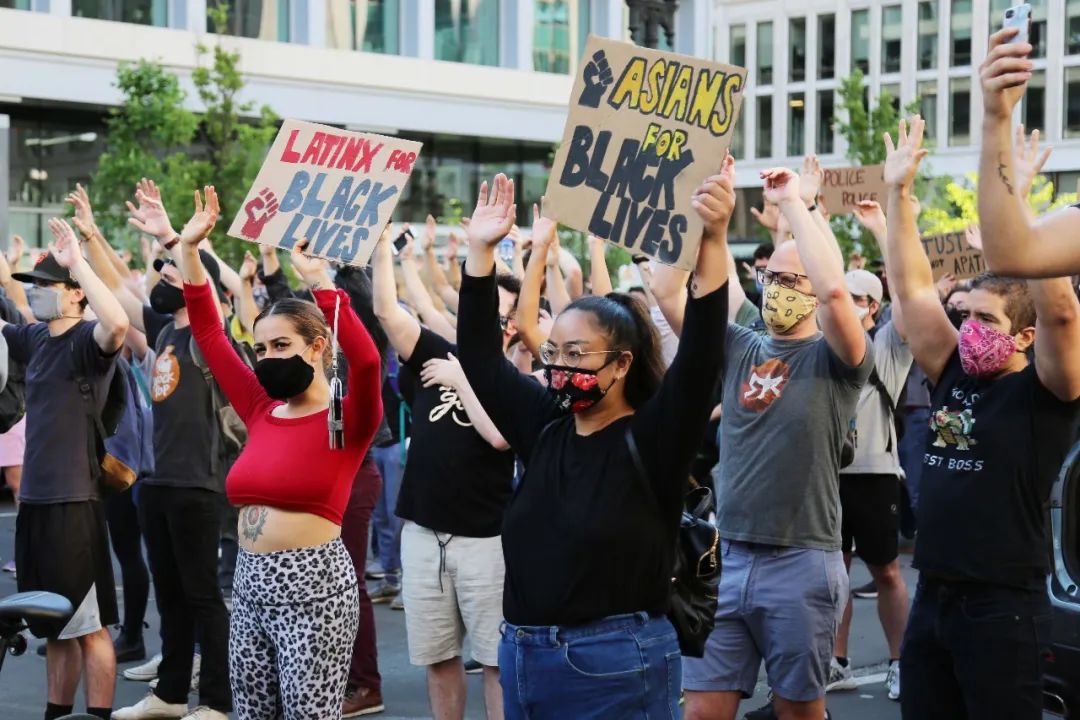 LATINX FOR
BLACK
LIVES
ASIANS
FOR
BLACK
LIVES
POLICE
POLICE
ST BOSS